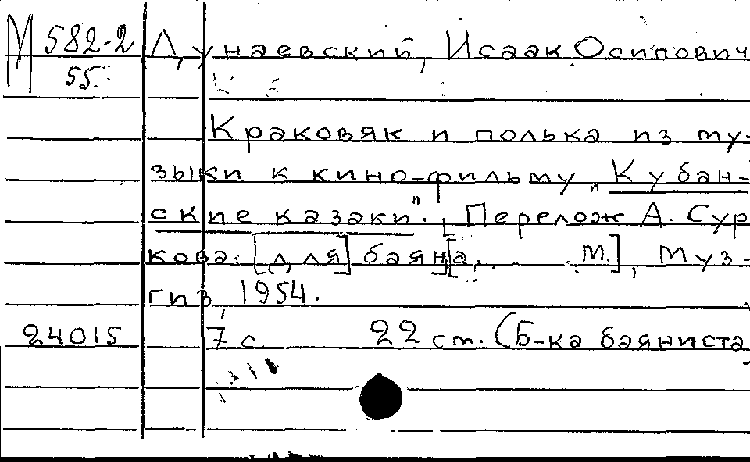 М 582-2 Дунаевский, Исаак Осипович
55
Краковяк и полька из му-
зыки к кино-фильму „Кубан-
ские казаки". Перелож А. Сур
кова. [для] баяна. М.], Муз-
гиз, 1954.
24015 7 с. 22 см. (Б-ка баяниста